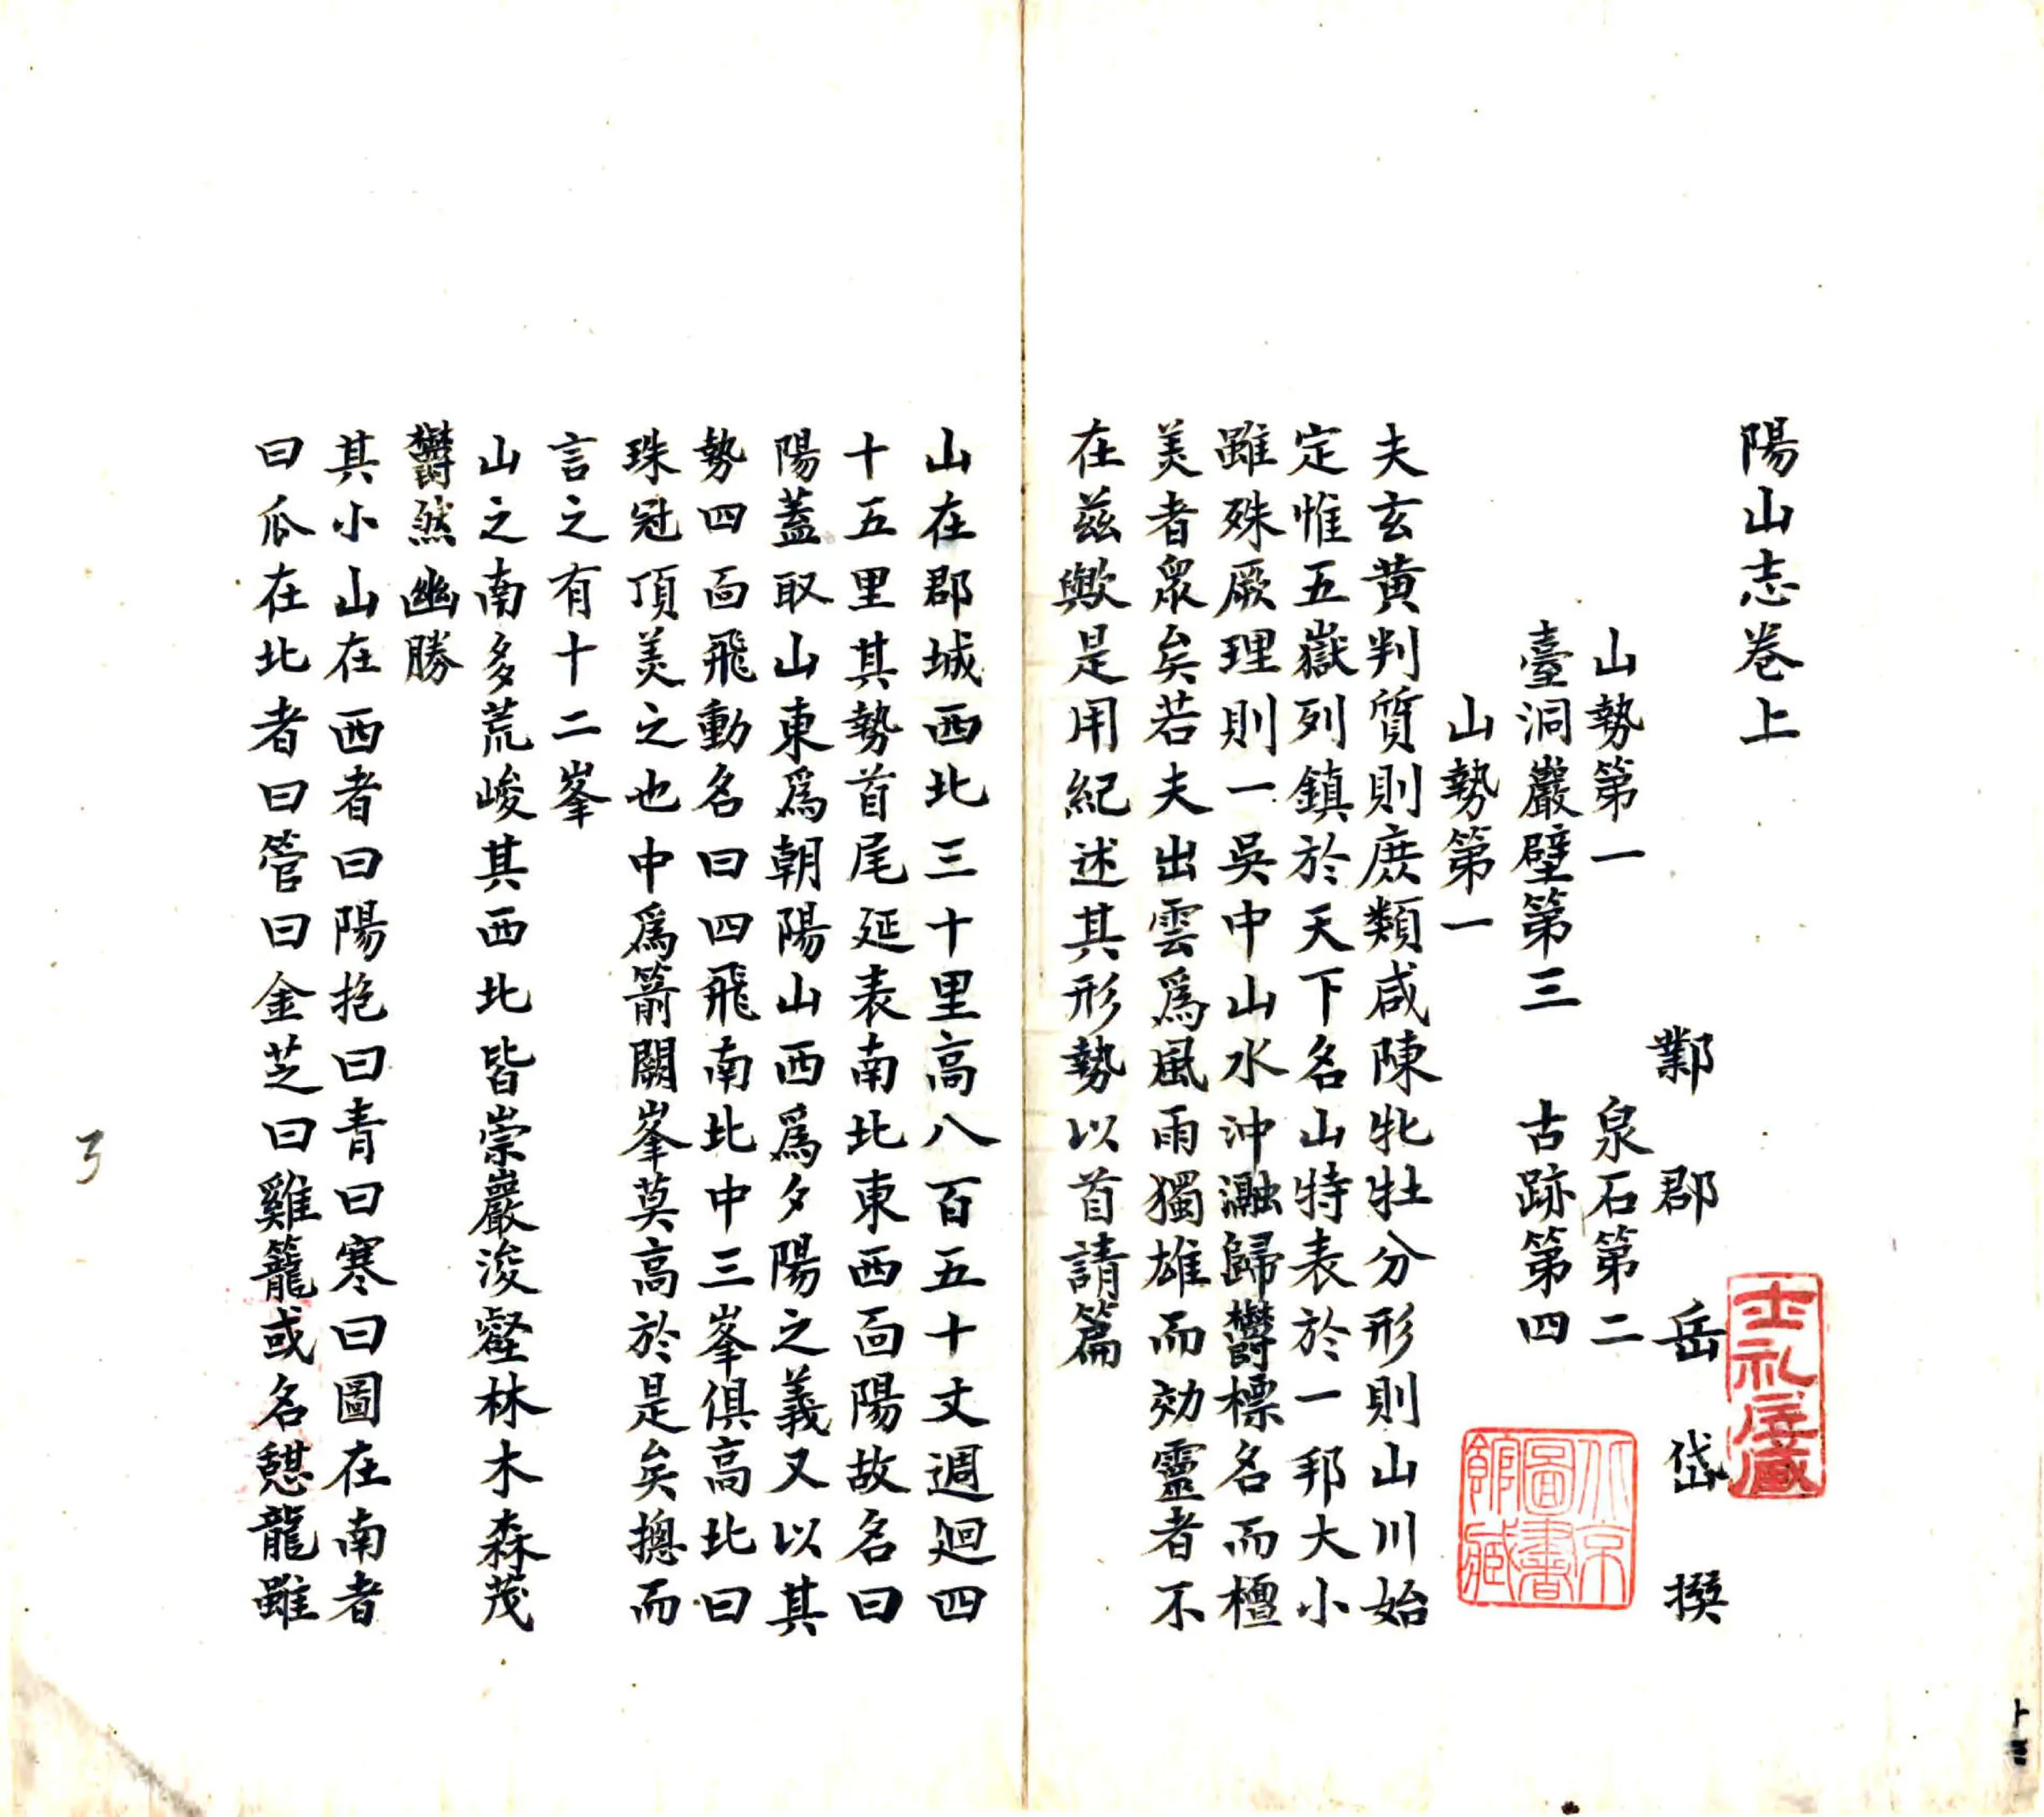 陽山志卷上
鄴郡岳岱撰
山勢第一　泉石第二
臺洞巖壁第三　古跡第四
山勢第一
夫玄黃判質則庶類咸陳牝牡分形則山川始
定惟五嶽列鎮於天下名山特表於一邦大小
雖殊厥理則一吳中山水沖瀜歸欝標名而檀
美者衆矣若夫出雲爲風雨獨雄而効靈者不
在茲歟是用紀述其形勢以首請篇
山在郡城西北三十里高八百五十丈週迴四
十五里其勢首尾延表南北東西面陽故名曰
陽蓋取山東爲朝陽山西爲夕陽之義又以其
勢四面飛動名曰四飛南北中三峯俱高北曰
珠冠頂美之也中爲箭闕峯莫高於是矣摠而
言之有十二峯
山之南多荒峻其西北皆崇巖浚壑林木森茂
欝然幽勝
其小山在西者曰陽抱曰青曰寒曰圖在南者
曰瓜在北者曰管曰金芝曰雞籠或名憇龍雖
士礼居藏
北京圖書館藏
3